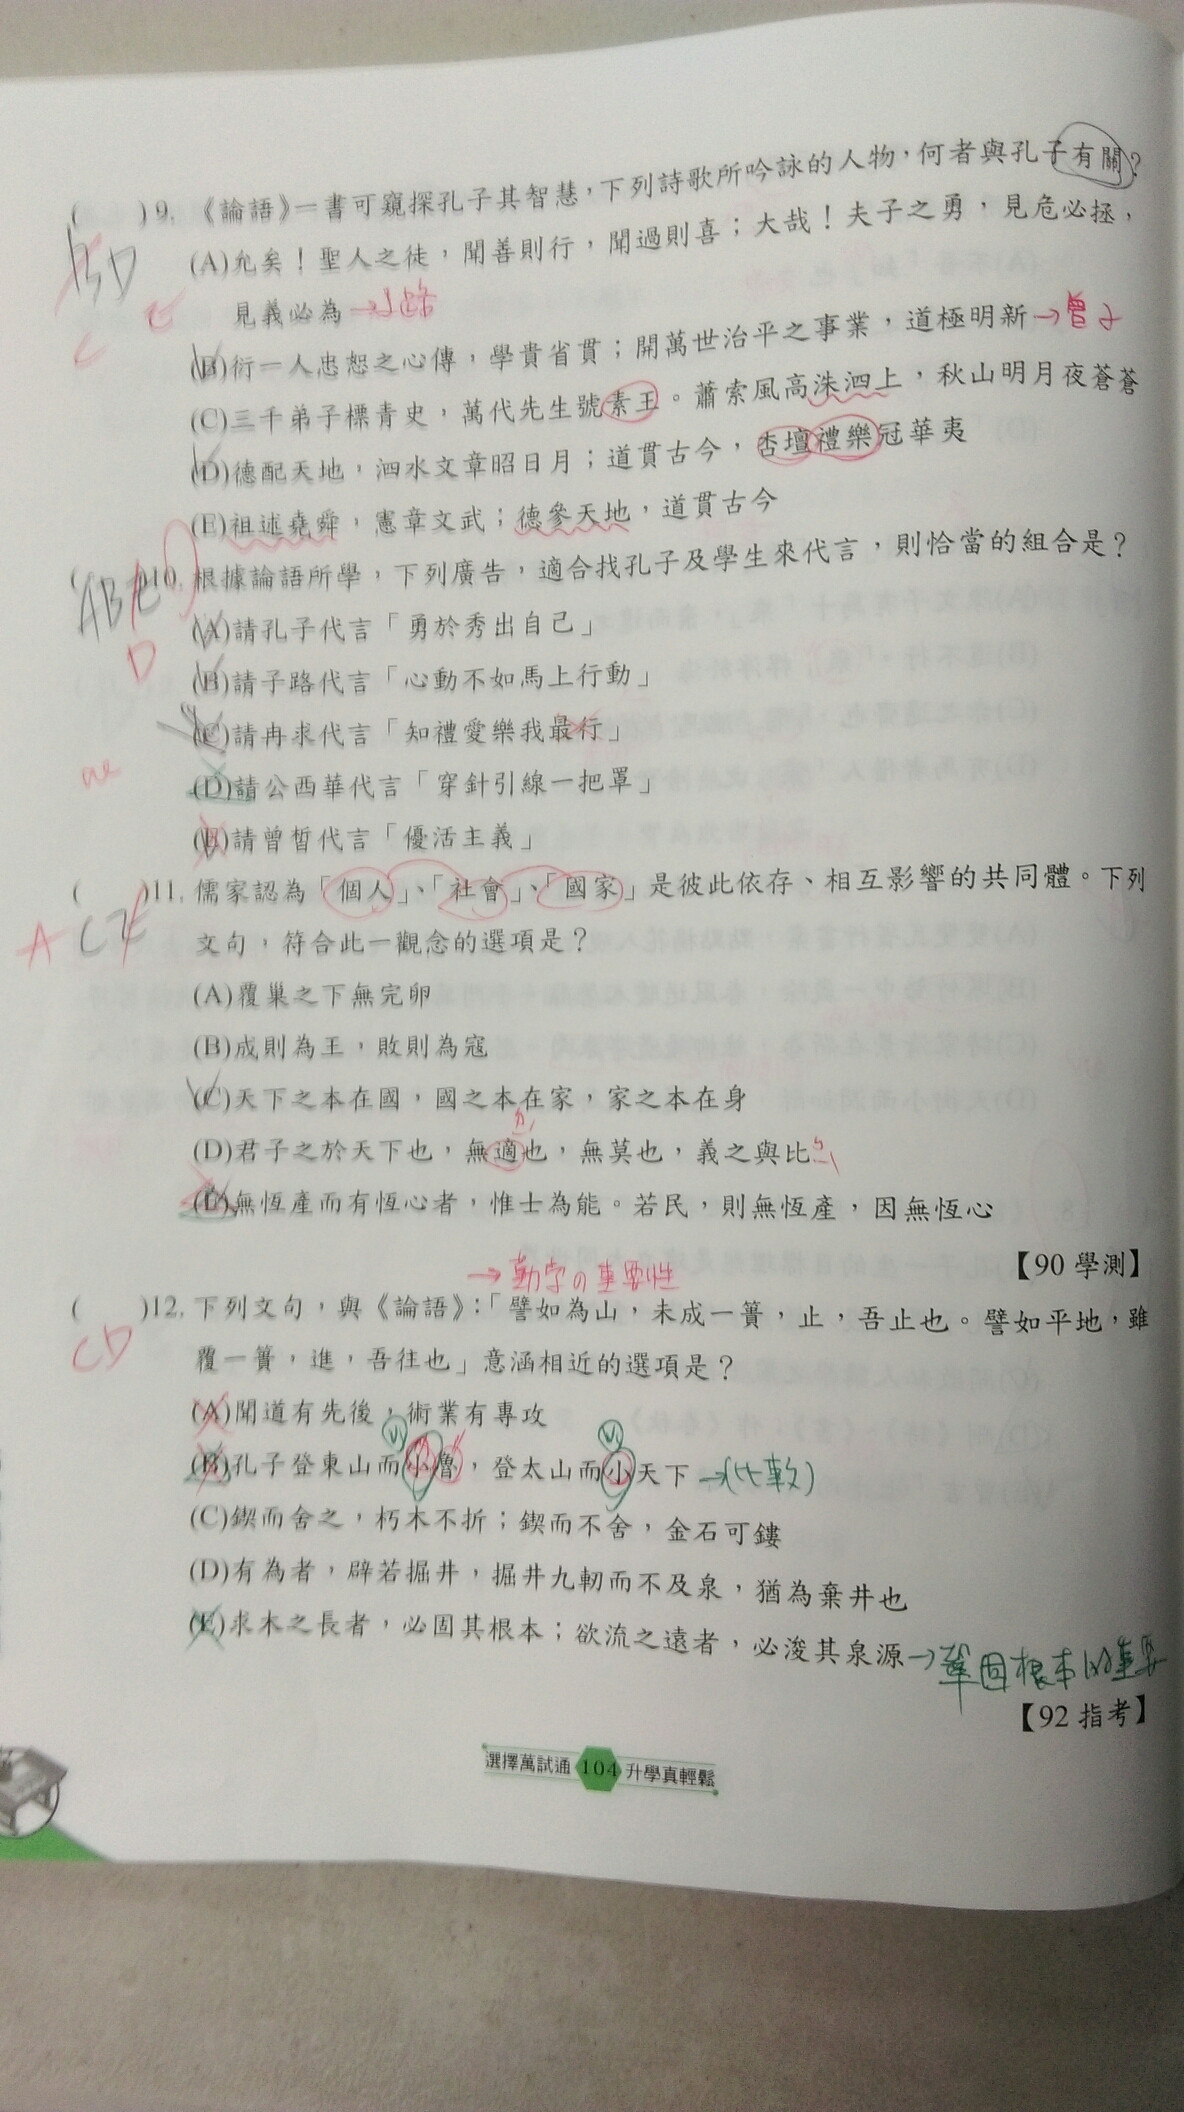 ( )9. 《論語》一書可窺探孔子其智慧，下列詩歌所吟詠的人物，何者與孔子有關？
BD
C E
(A)允矣！聖人之徒，聞善則行，聞過則喜；大哉！夫子之勇，見危必拯，
見義必為→子路
(B)衍一人忠恕之心傳，學貴省貫；開萬世治平之事業，道極明新→曾子
(C)三千弟子標青史，萬代先生號素王。蕭索風高洙泗上，秋山明月夜蒼蒼
(D)德配天地，泗水文章昭日月；道貫古今，杏壇禮樂冠華夷
(E)祖述堯舜，憲章文武；德參天地，道貫古今
ABE
D
10. 根據論語所學，下列廣告，適合找孔子及學生來代言，則恰當的組合是？
(A)請孔子代言「勇於秀出自己」
(B)請子路代言「心動不如馬上行動」
(C)請冉求代言「知禮愛樂我最行」
(D)請公西華代言「穿針引線一把罩」
(E)請曾晳代言「優活主義」
A CE
( )11. 儒家認為「個人」、「社會」、「國家」是彼此依存、相互影響的共同體。下列
文句，符合此一觀念的選項是？
(A)覆巢之下無完卵
(B)成則為王，敗則為寇
(C)天下之本在國，國之本在家，家之本在身
(D)君子之於天下也，無適也，無莫也，義之與比
(E)無恆產而有恆心者，惟士為能。若民，則無恆產，因無恆心
【90 學測】
→勤學の重要性
( )12. 下列文句，與《論語》：「譬如為山，未成一簣，止，吾止也。譬如平地，雖
CD
覆一簣，進，吾往也」意涵相近的選項是？
(A)聞道有先後，術業有專攻
(B)孔子登東山而小魯，登太山而小天下→(比較)
(C)鍥而舍之，朽木不折；鍥而不舍，金石可鏤
(D)有為者，辟若掘井，掘井九軔而不及泉，猶為棄井也
(E)求木之長者，必固其根本；欲流之遠者，必浚其泉源→鞏固根本的重要
【92 指考】
選擇萬試通 104 升學真輕鬆